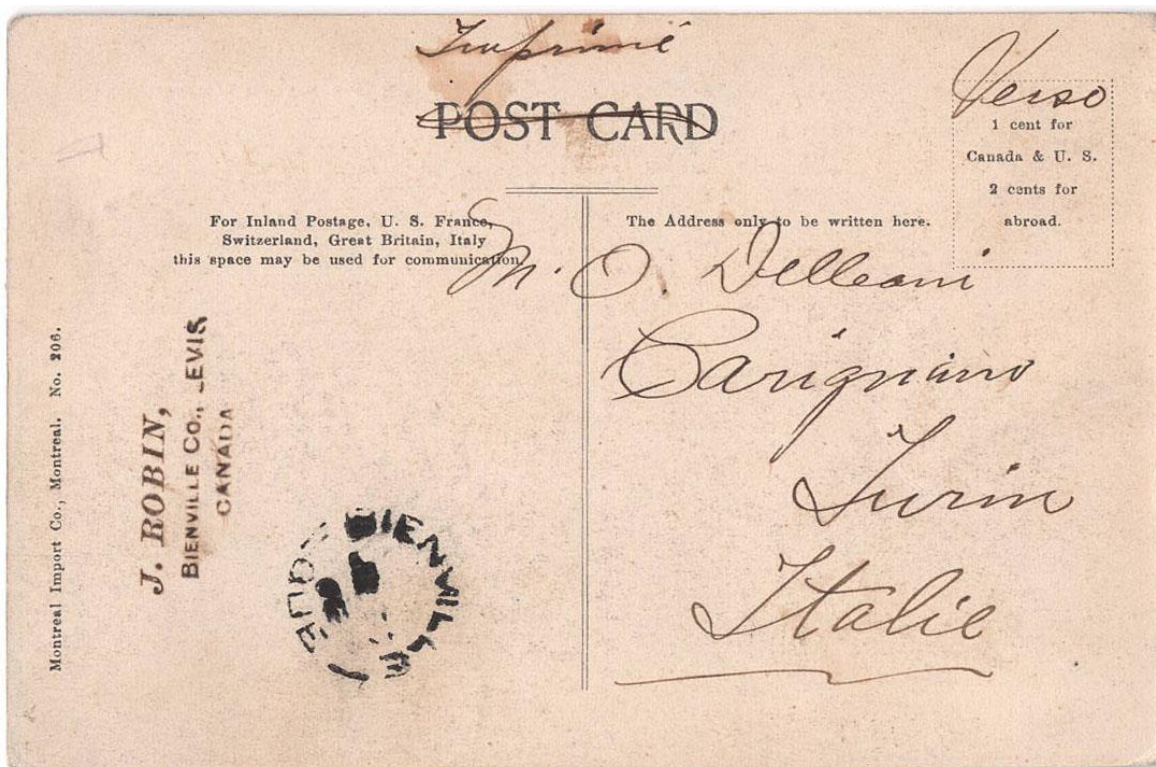 Imprimé
POST CARD
Verso
1 cent for
Canada & U. S.
2 cents for
abroad.
For Inland Postage, U. S. France,
Switzerland, Great Britain, Italy
this space may be used for communication
The Address only to be written here.
M. O. Delleani
Carignano
Turin
Italie
Montreal Import Co., Montreal. No. 206.
J. ROBIN,
BIENVILLE CO., LEVIS
CANADA
BIENVILLE
QUE